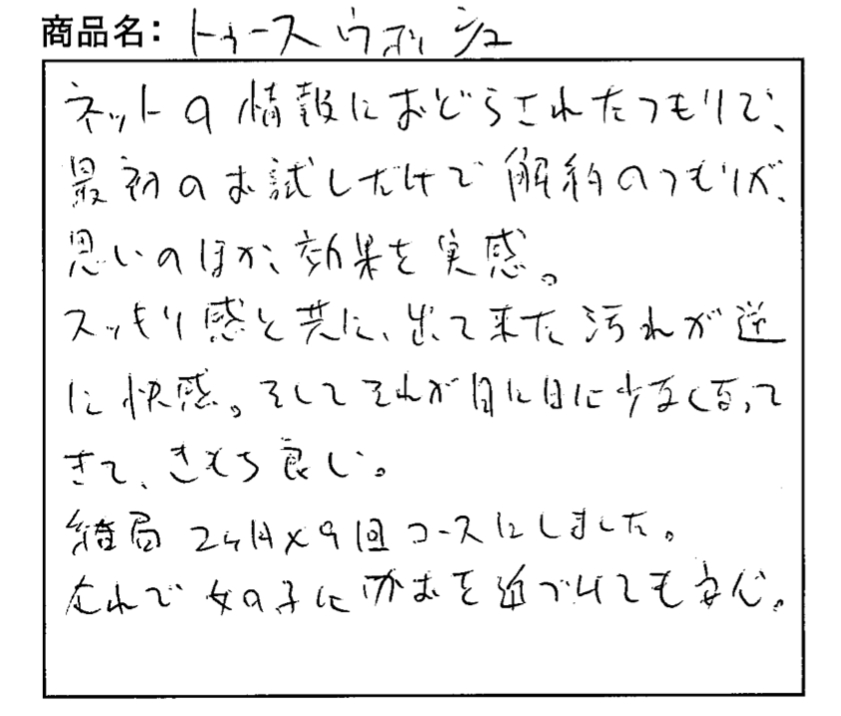 商品名： トゥースウォッシュ
ネットの情報におどらされたつもりで、
最初のお試しだけで解約のつもりが、
思いのほか、効果を実感。
スッキリ感と共に、出て来た汚れが逆
に快感。そしてそれが日に日に少なくなって
きて、きもち良い。
結局2ヶ月×9回コースにしました。
これで女の子にかおを近づけても安心。